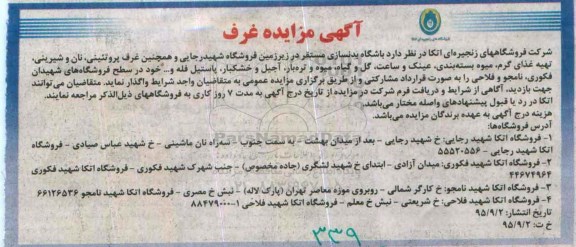 آگهی مزایده غرف
شرکت فروشگاههای زنجیره‌ای اتکا در نظر دارد باشگاه بدنسازی مستقر در زیرزمین فروشگاه شهیدرجایی و همچنین غرف پروتئینی، نان و شیرینی،
تهیه غذای گرم، میوه بسته‌بندی، عینک و ساعت، گل و گیاه، میوه و تره‌بار، آجیل و خشکبار، پاستیل فله و... خود در سطح فروشگاه‌های شهیدان
فکوری، نامجو و فلاحی را به صورت قرارداد مشارکتی و از طریق برگزاری مزایده عمومی به متقاضیان واجد شرایط واگذار نماید. متقاضیان می‌توانند
جهت بازدید، آگاهی از شرایط و دریافت فرم شرکت در مزایده از تاریخ درج آگهی به مدت ۷ روز کاری به فروشگاههای ذیل‌الذکر مراجعه نمایند.
اتکا در رد یا قبول پیشنهادهای واصله مختار می‌باشد.
هزینه درج آگهی به عهده برندگان مزایده می‌باشد.
آدرس فروشگاه‌ها:
۱- فروشگاه اتکا شهید رجایی: خ شهید رجایی - بعد از میدان بهشت - به سمت جنوب - سه‌راه نان ماشینی - خ شهید عباس صیادی - فروشگاه
اتکا شهید رجایی - ۵۵۵۲۰۵۵۶
۲- فروشگاه اتکا شهید فکوری: میدان آزادی - ابتدای خ شهید لشگری (جاده مخصوص) - جنب شهرک شهید فکوری - فروشگاه اتکا شهید فکوری
۴۴۶۷۴۹۶۴
۳- فروشگاه اتکا شهید نامجو: خ کارگر شمالی - روبروی موزه معاصر تهران (پارک لاله) - نبش خ مصری - فروشگاه اتکا شهید نامجو ۶۶۱۲۶۵۳۶
۴- فروشگاه اتکا شهید فلاحی: خ شریعتی - نبش خ معلم - فروشگاه اتکا شهید فلاحی ۱-۸۸۴۷۹۰۰۰
تاریخ انتشار: ۹۵/۹/۲
خ ت: ۹۵/۹/۲
۳۳۹
ParsNamadData